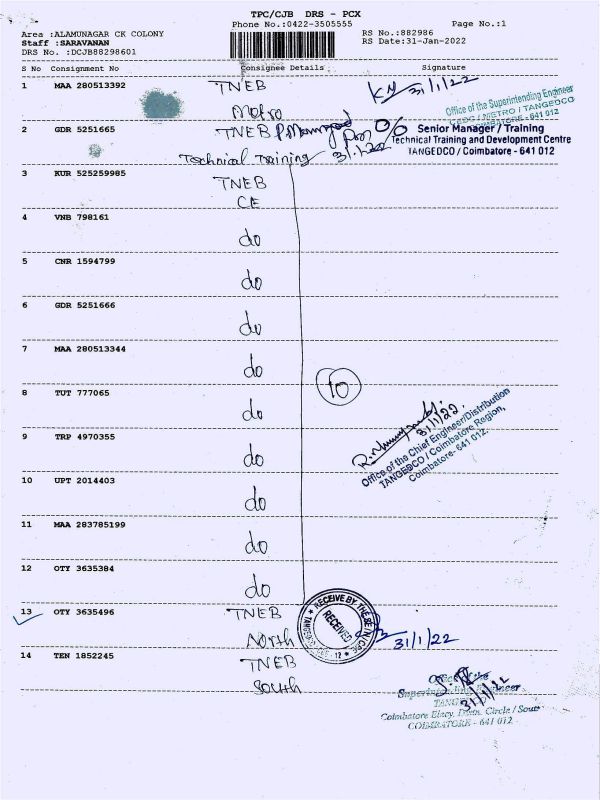 TPC/CJB DRS - PCX
Phone No.:0422-3505555 Page No.:1
Area :ALAMUNAGAR CK COLONY RS No.:882986
Staff :SARAVANAN RS Date:31-Jan-2022
DRS No. :DCJB88298601
S No Consignment No Consignee Details Signature
1 MAA 280513392 TNEB 31/1/22
Metro
Office of the Superintending Engineer
CEDC / METRO / TANGEDCO
COIMBATORE - 641 012
2 GDR 5251665 TNEB
Technical Training 31.1.22
Senior Manager / Training
Technical Training and Development Centre
TANGEDCO / Coimbatore - 641 012
3 KUR 525259985 TNEB
CE
4 VNB 798161 do
5 CNR 1594799 do
6 GDR 5251666 do
7 MAA 280513344 do
10
8 TUT 777065 do
31/1/22
Office of the Chief Engineer/Distribution
TANGEDCO / Coimbatore Region,
Coimbatore- 641 012.
9 TRP 4970355 do
10 UPT 2014403 do
11 MAA 283785199 do
12 OTY 3635384 do
13 OTY 3635496 TNEB
North
RECEIVE BY THE SE / N / CPC
RECEIVED
31/1/22
14 TEN 1852245 TNEB
South
31/1/22
Superintending Engineer
Coimbatore Elecy. Distn. Circle / South
COIMBATORE - 641 012